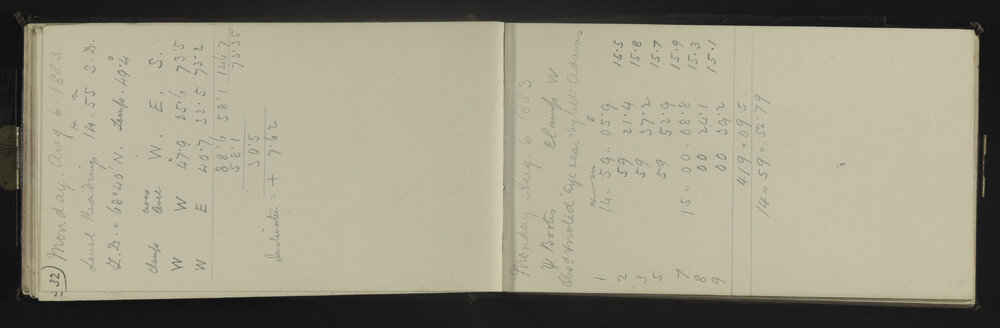 32
Monday Aug. 6. 1883
Level Reading 14 h 55 m S.D.
I.D. = 68° 40' N. Temp. 49°.4
Clamp cross level W. E. S.
W W 47.9 25.6 73.5
W E 40.7 32.5 73.2
88.6 58.1 146.7
58.1 73.35
30.5
Inclination = + 7.62
Monday Aug. 6. 1883
Ψ Bootis Clamp W
Obsd & noted Eye near by W Adams
h m s
1 14 .. 59 .. 05.9
2 59 21.4 15.5
3 59 37.2 15.8
5 59 52.9 15.7
7 15 .. 00 .. 08.8 15.9
8 00 24.1 15.3
9 00 39.2 15.1
419 .. 09.5
14 .. 59 .. 52.79